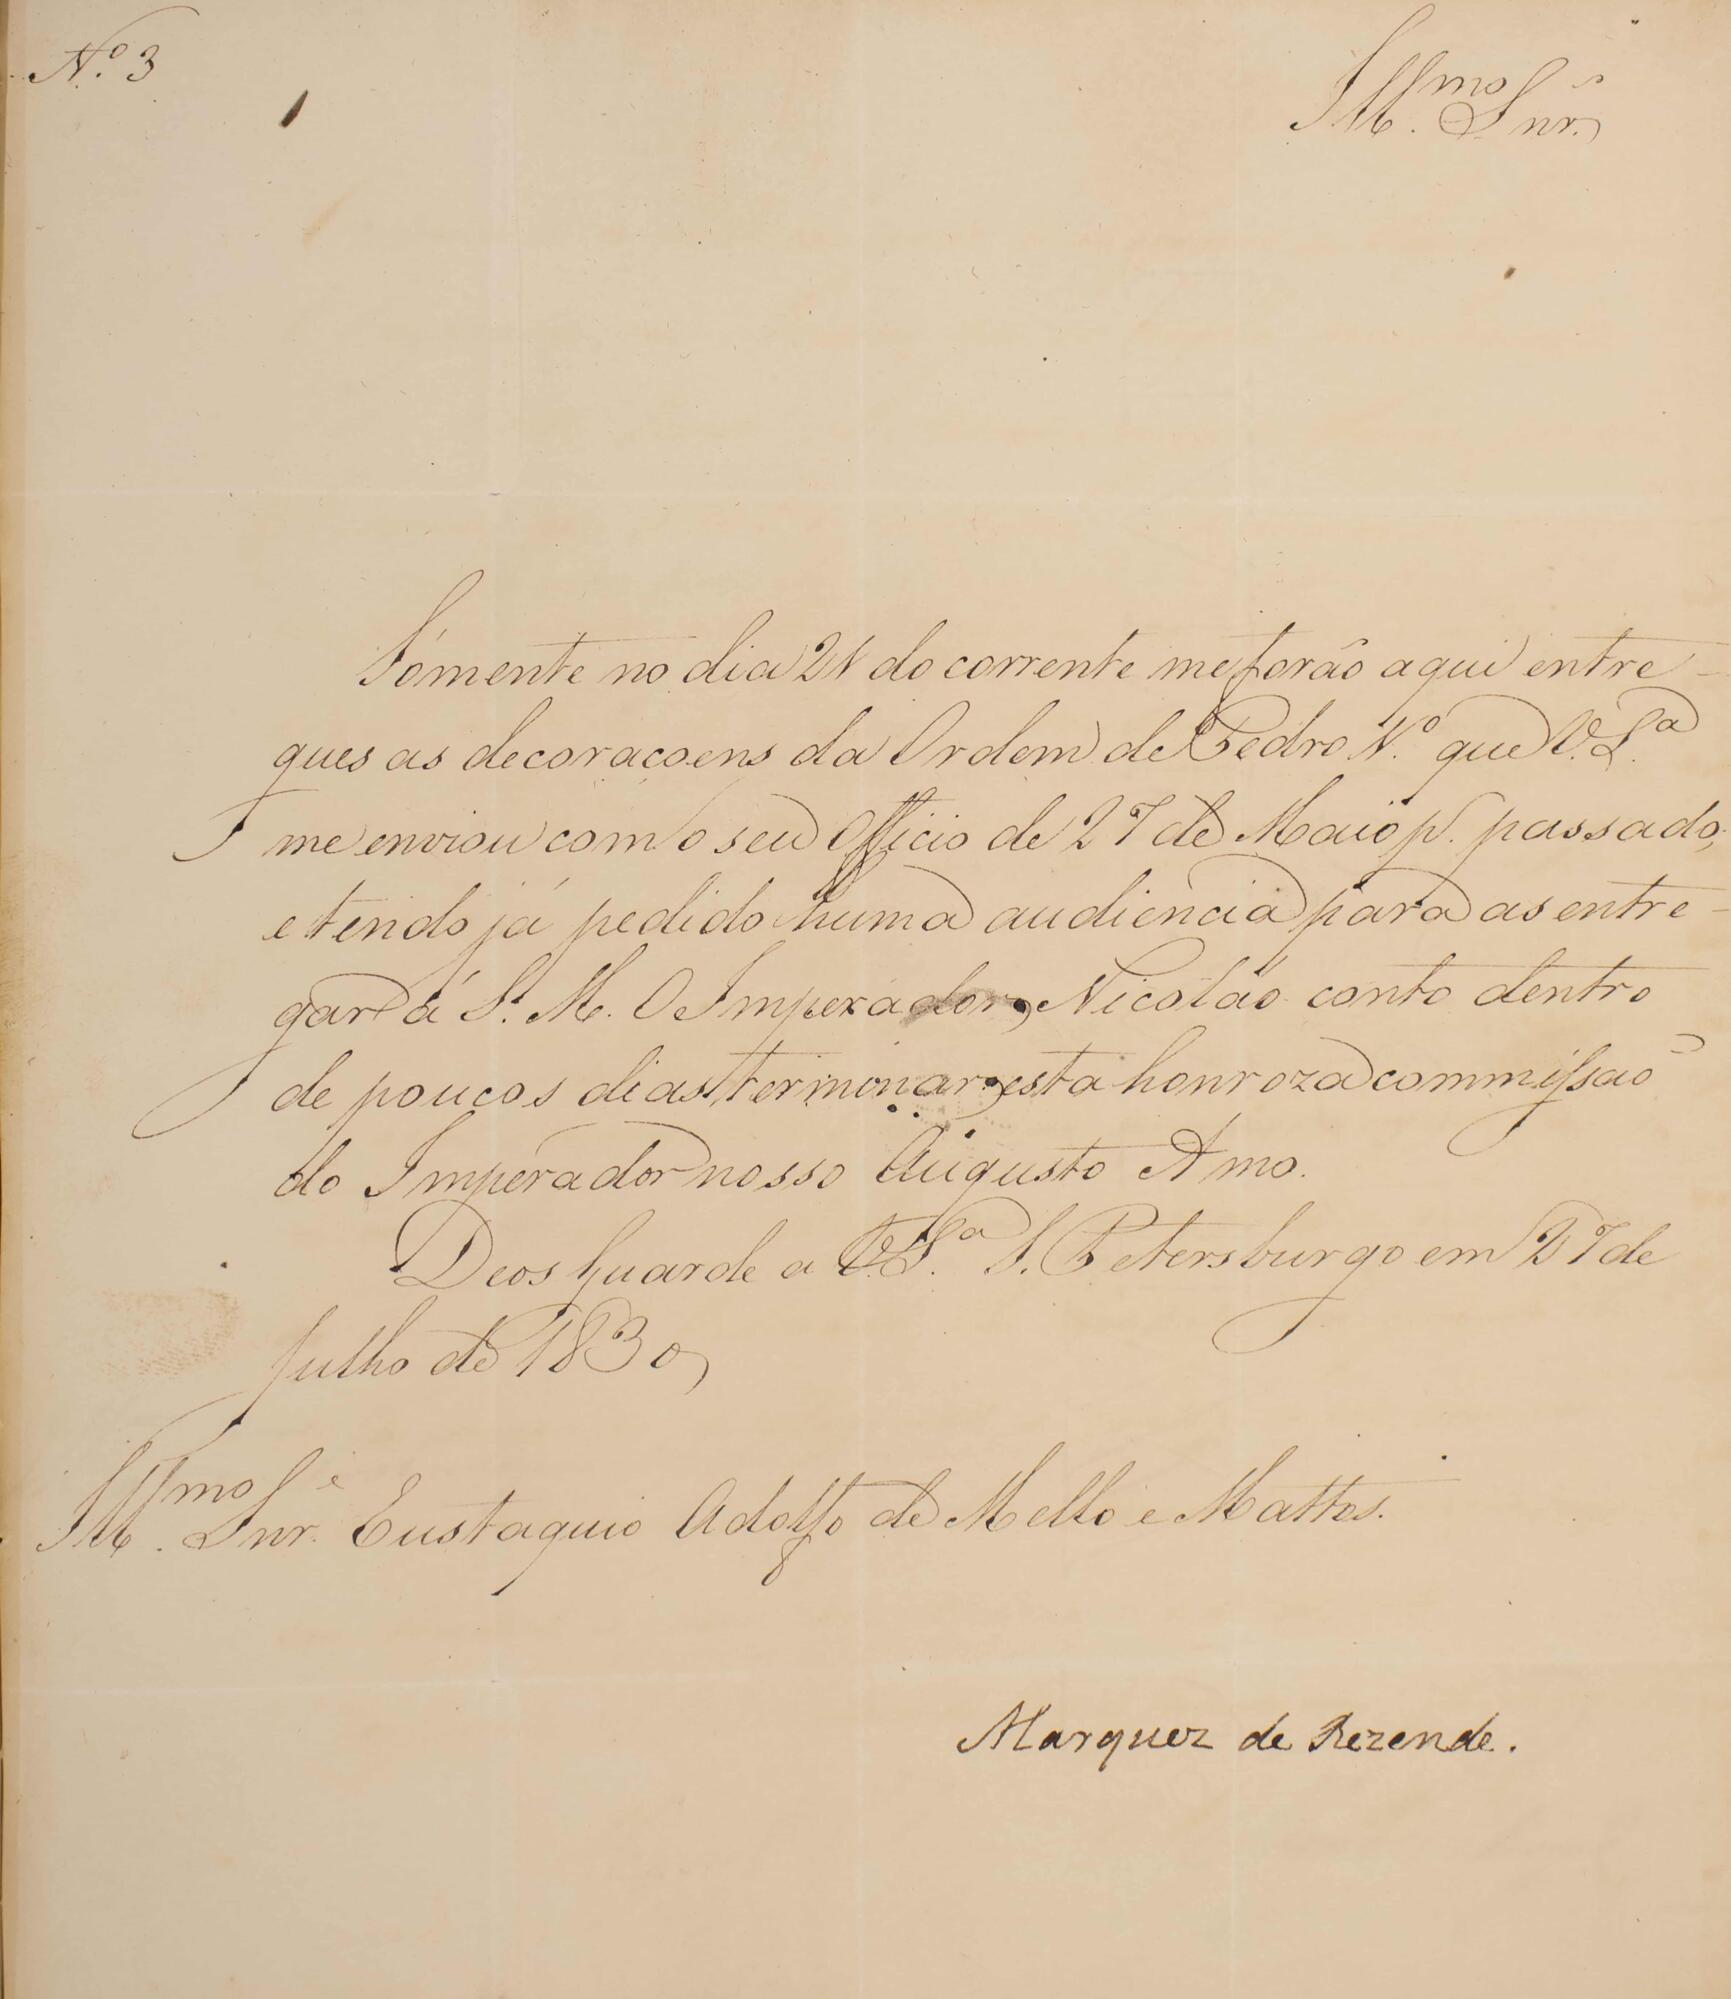 N.º 3
Ill.mo Snr.
Sómente no dia 21 do corrente me forão aqui entre-
ques as decoraçoens da Ordem de Pedro 1.º que V. S.ª
me enviou com o seu Officio de 27 de Maio p. passado,
e tendo já pedido huma audiencia para as entre-
gar á S. M. O Imperador Nicoláo conto dentro
de poucos dias terminar esta honroza commissão
do Imperador nosso Augusto Amo.
Deos Guarde a V. S.ª S. Petersburgo em 27 de
Julho de 1830,
Ill.mo Snr. Eustaquio Adolfo de Mello e Mattos.
Marquez de Rezende.